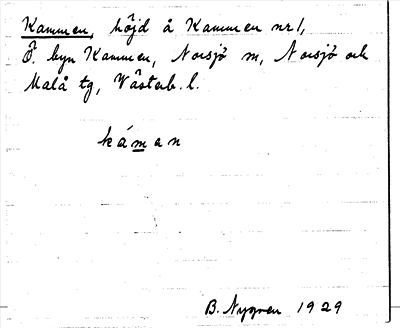 Kammen, höjd å Kammen nr 1,
Ö. byn Kammen, Norsjö sn, Norsjö och
Malå tg, Västerb. l.
káman
B. Nygren 1929